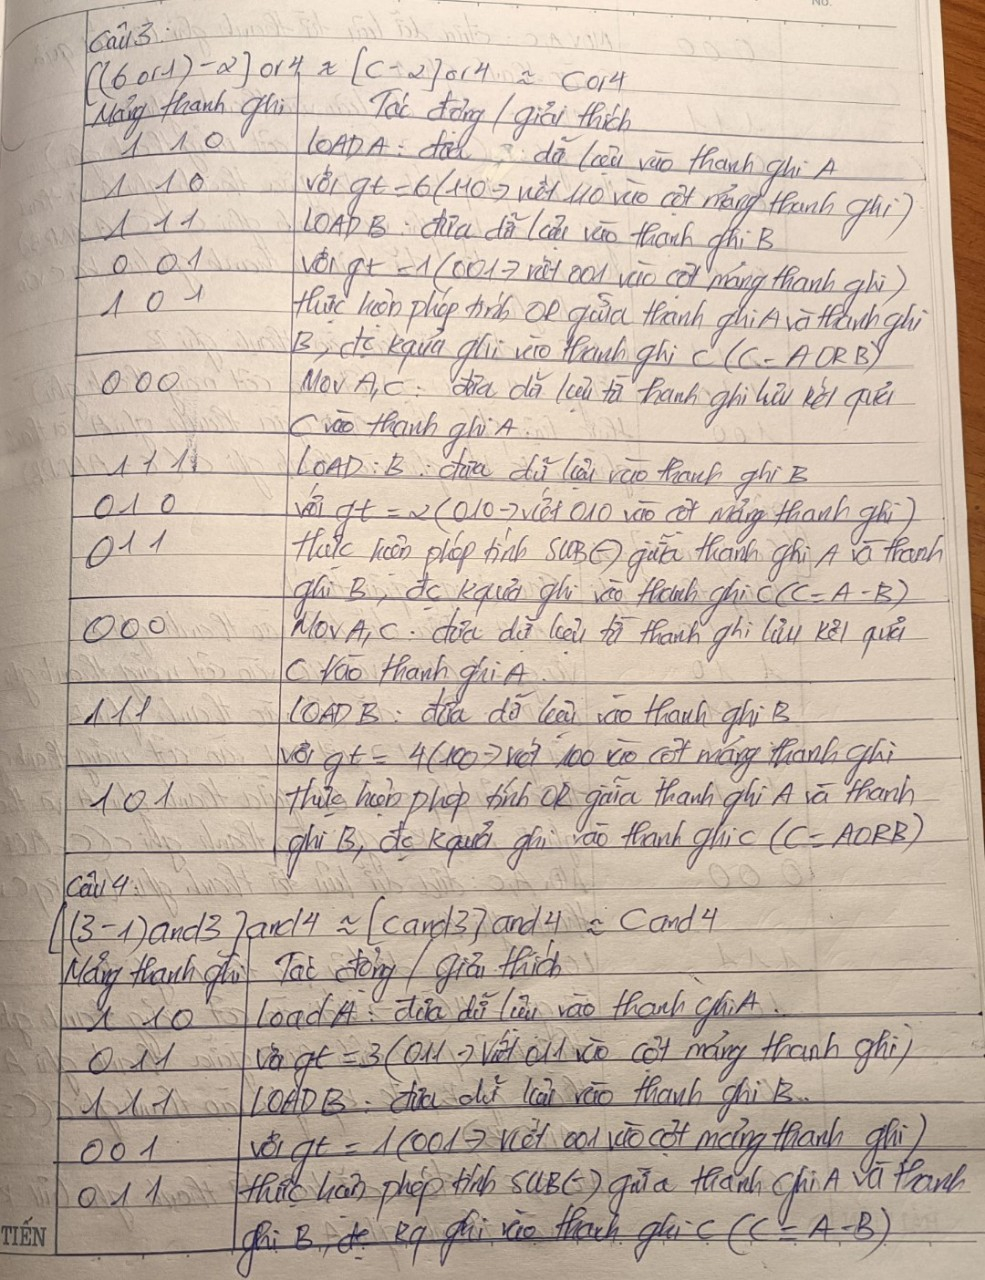 Câu 3:
[(6 or 1) - 2] or 4 ≈ [C - 2] or 4 ≈ C or 4
Mảng thanh ghi Tác động / giải thích
1 1 0 LOAD A: đưa dữ liệu vào thanh ghi A
1 1 0 với gt = 6 (110 → viết 110 vào cột mảng thanh ghi)
1 1 1 LOAD B: đưa dữ liệu vào thanh ghi B
0 0 1 với gt = 1 (001 → viết 001 vào cột mảng thanh ghi)
1 0 1 thực hiện phép tính OR giữa thanh ghi A và thanh ghi
B, đc kquả ghi vào thanh ghi C (C = A OR B)
0 0 0 Mov A, C: đưa dữ liệu từ thanh ghi lưu kết quả
C vào thanh ghi A
1 1 1 LOAD: B: đưa dữ liệu vào thanh ghi B
0 1 0 với gt = 2 (010 → viết 010 vào cột mảng thanh ghi)
0 1 1 thực hiện phép tính SUB(-) giữa thanh ghi A và thanh
ghi B, đc kquả ghi vào thanh ghi C (C = A - B)
0 0 0 Mov A, C: đưa dữ liệu từ thanh ghi lưu kết quả
C vào thanh ghi A.
1 1 1 LOAD B: đưa dữ liệu vào thanh ghi B
với gt = 4 (100 → viết 100 vào cột mảng thanh ghi
1 0 1 thực hiện phép tính OR giữa thanh ghi A và thanh
ghi B, đc kquả ghi vào thanh ghi C (C = A OR B)
Câu 4:
[(3 - 1) and 3] and 4 ≈ [C and 3] and 4 ≈ C and 4
Mảng thanh ghi Tác động / giải thích
1 1 0 Load A: đưa dữ liệu vào thanh ghi A.
0 1 1 với gt = 3 (011 → viết 011 vào cột mảng thanh ghi)
1 1 1 LOAD B: đưa dữ liệu vào thanh ghi B.
0 0 1 với gt = 1 (001 → viết 001 vào cột mảng thanh ghi)
0 1 1 thực hiện phép tính SUB(-) giữa thanh ghi A và thanh
ghi B, đc kq ghi vào thanh ghi C (C = A - B)
TIẾN